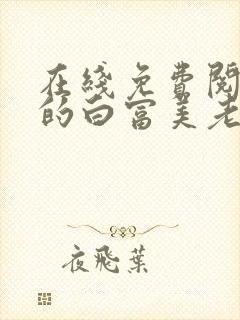 在线免费阅
的白富美老
夜飛葉